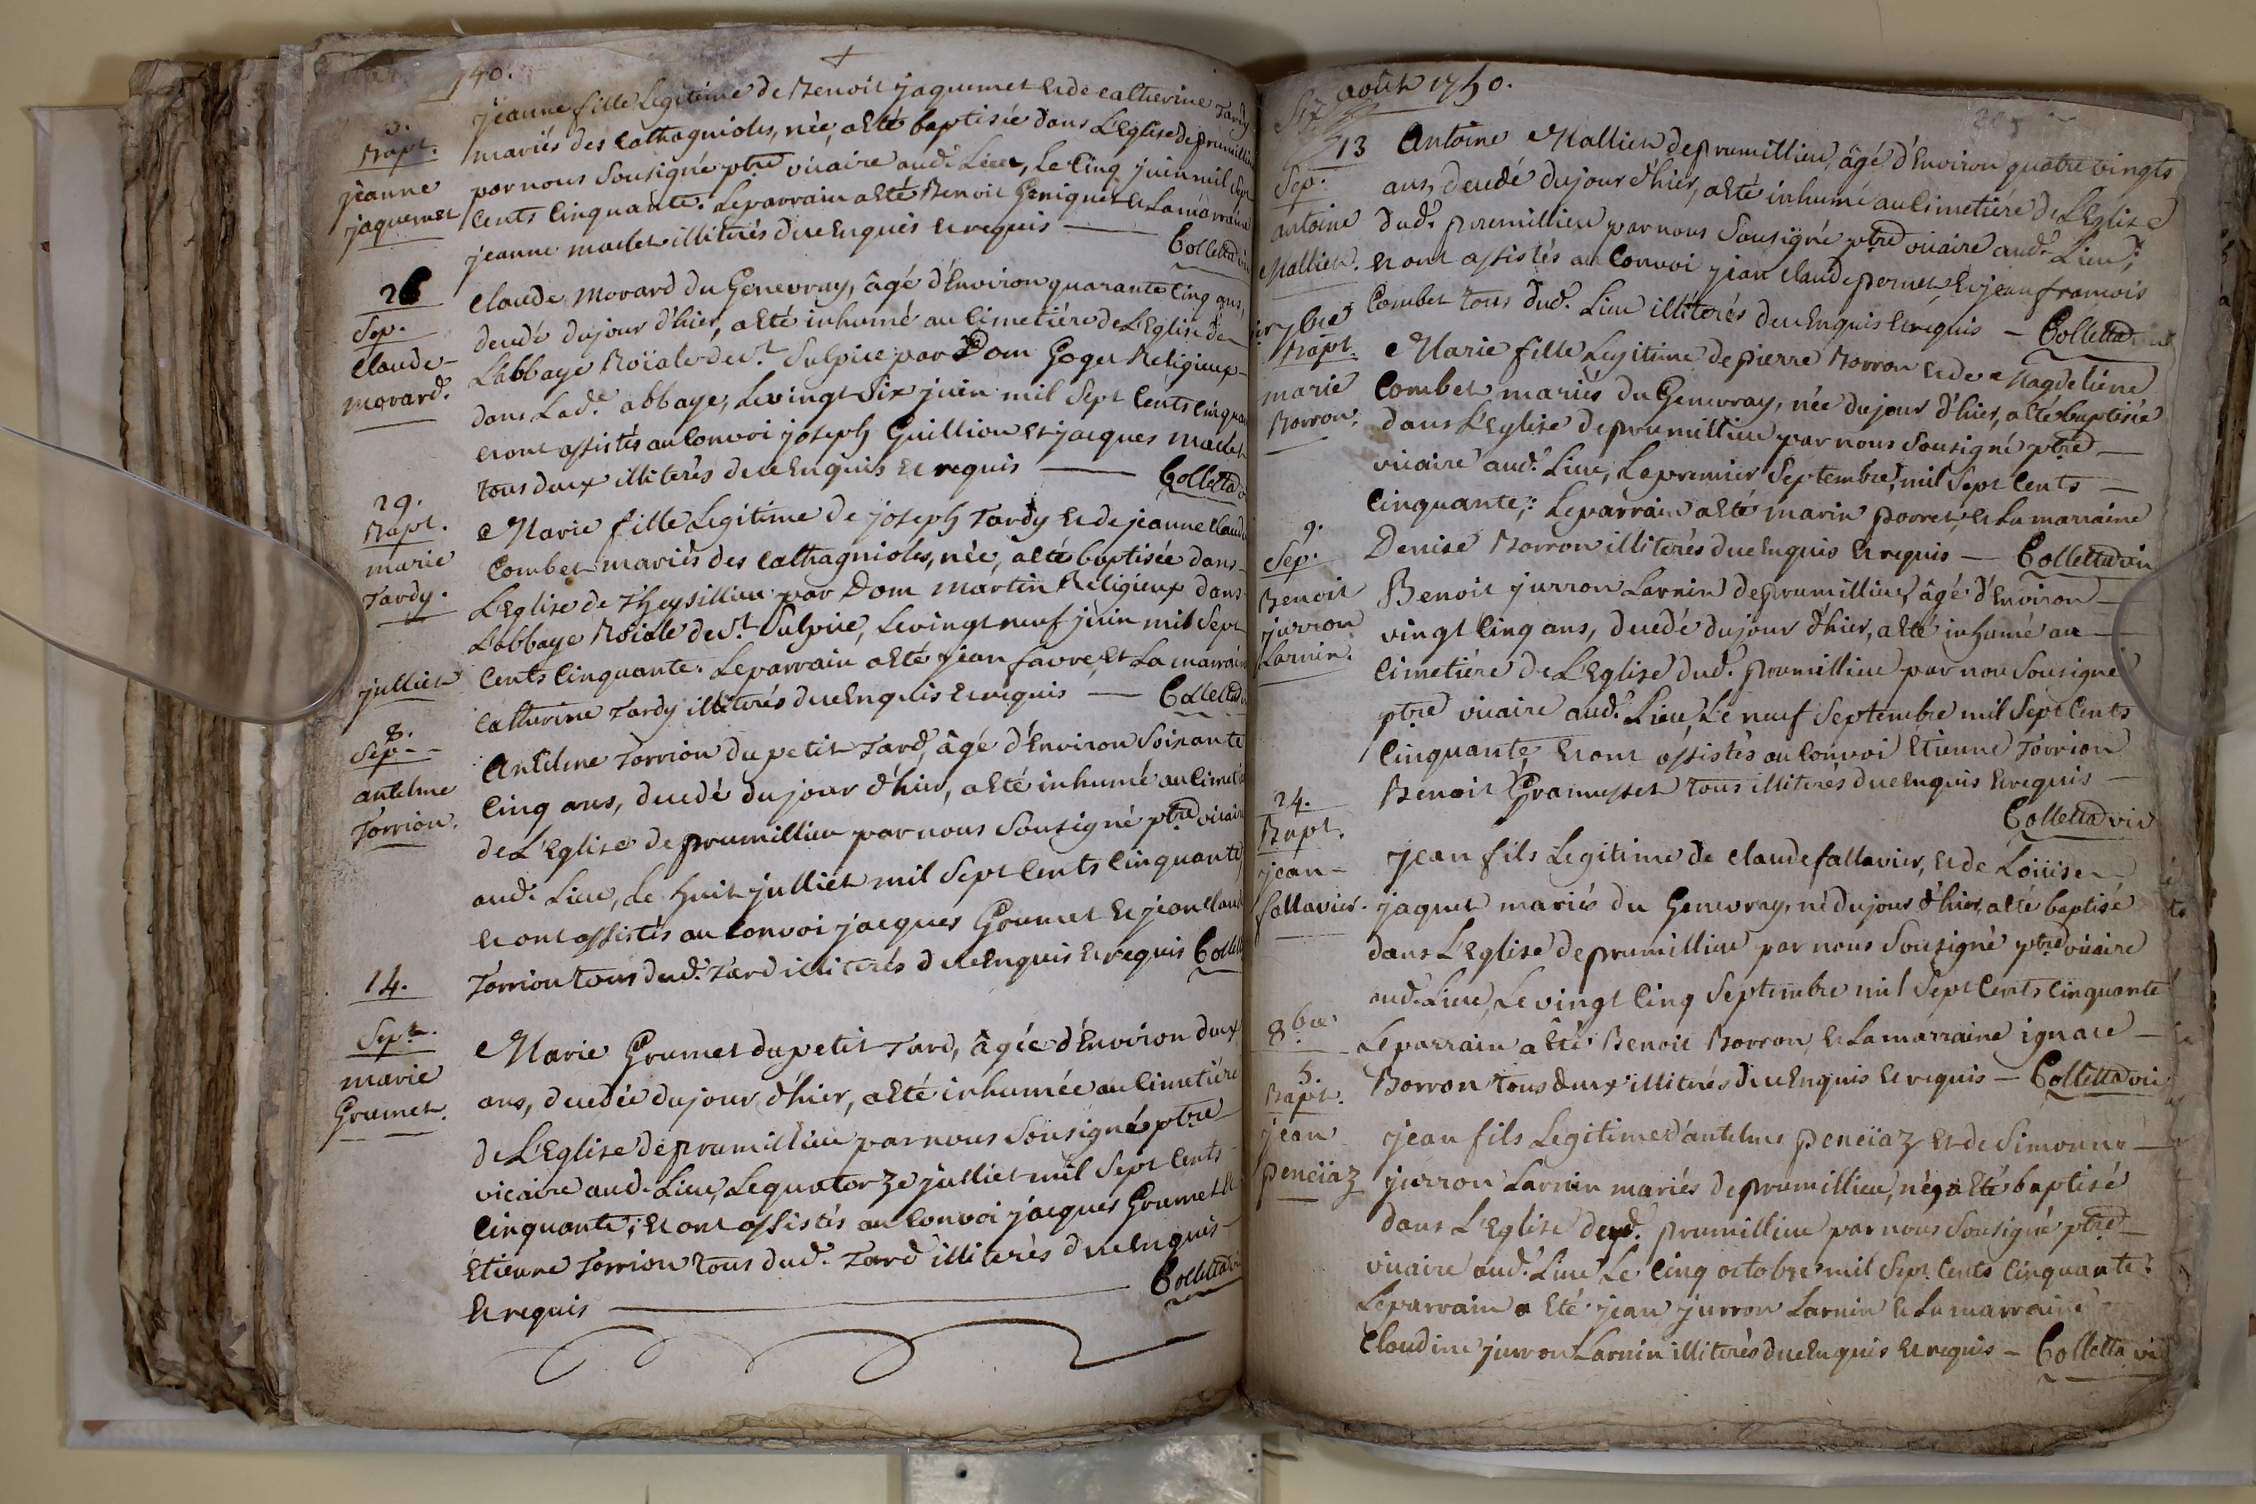 1740.
5.
Bapt.
jeanne
jaquemet
jeanne fille Legitime de Benoit jaquemet et de catherine Tardy
mariés des Cathagnioles, née, a été baptisée dans L'Eglise de prumillieu
par nous Sousigné ptre vicaire aud. Lieu, Le Cinq juin mil Sept
Cents Cinquante. Le parrain a été Benoit Peniguet et La marraine
jeanne maclet illiterés de ce Enquis et requis — Colletta vic
26
Sep.
claude
morard.
claude morard du Genevray, âgé d'Environ quarante Cinq ans,
decedé du jour d'hier, a été inhumé au Cimetiére de L'Eglise de
L'abbaye Roïale de St. Sulpice par Dom Goger Religieux
dans Lad.e abbaye, Le vingt Six juin mil Sept Cents cinquante
et ont assistés au Convoi joseph Guillion et jacques maclet
tous deux illiterés de ce Enquis et requis — Colletta v
29.
Bapt.
marie
Tardy.
Marie fille Legitime de joseph Tardy et de jeanne Claudi
Combet mariés des Cathagnioles, née, a été baptisée dans
L'Eglise de Theysillieu par Dom martin Religieux dans
L'abbaye Roïale de St. Sulpice, Le vingt neuf juin mil Sept
Cents Cinquante. Le parrain a été jean favre, et La marraine
Catherine Tardy illiterés de ce Enquis et requis — Colletta v
julliet
8.
Sep.
antelme
Torrion.
Antelme Torrion du petit Tard, âgé d'Environ Soixante
Cinq ans, decedé du jour d'hier, a été inhumé au Cimetié
de L'Eglise de prumillieu par nous Sousigné ptre vicaire
aud. Lieu, Le huit julliet mil Sept Cents Cinquante
et ont assistés au Convoi jacques Grumet et jean Claud
Torrion tous dud. Tard illiterés de ce Enquis et requis Collett
14.
Sept.
marie
Grumet.
Marie Grumet du petit Tard, âgée d'Environ deux
ans, decedée du jour d'hier, a été inhumée au Cimetiére
de L'Eglise de prumillieu par nous Sousigné ptre
vicaire aud. Lieu, Le quatorze julliet mil Sept Cents
Cinquante; et ont assistés au Convoi jacques Grumet et
Etienne Torrion tous dud. Tard illiterés de ce Enquis
et requis — Colletta vi
août 1750.
13
Sep.
antoine
Mallien.
Antoine Mallien de prumillieu, âgé d'Environ quatre vingts
ans, decedé du jour d'hier, a été inhumé au Cimetiére de L'Eglise
dud. prumillieu par nous Sousigné ptre vicaire aud. Lieu;
et ont assistés au Convoi jean claude pernet, et jean francois
Combet tous dud. Lieu illiterés de ce Enquis et requis — Colletta vic
1er 7bre
Bapt.
marie
Borron.
Marie fille Legitime de pierre Borron et de Magdeléne
Combet mariés du Genevray, née du jour d'hier, a été baptisée
dans L'Eglise de prumillieu par nous Sousigné ptre
vicaire aud. Lieu, Le premier Septembre, mil Sept Cents
Cinquante; Le parrain a été marin porret, et La marraine
Denise Borron illiterés de ce Enquis et requis — Colletta vic
9.
Sep.
Benoit
jurron
Larnin.
Benoit jurron Larnin de prumillieu, âgé d'Environ
vingt Cinq ans, decedé du jour d'hier, a été inhumé au
Cimetiére de L'Eglise dud. prumillieu par nou Sousigné
ptre vicaire aud. Lieu, Le neuf Septembre mil Sept Cents
Cinquante, et ont assistés au Convoi Etienne Torrion
Benoit Gramusset tous illiterés de ce Enquis et requis —
Colletta vic
24.
Bapt.
jean
fallavier.
jean fils Legitime de claude fallavier, et de Loüise
jaquet mariés du Genevray, né du jour d'hier, a été baptisé
dans L'Eglise de prumillieu par nous Sousigné ptre vicaire
aud. Lieu, Le vingt Cinq Septembre mil Sept Cents Cinquante
Le parrain a été Benoit Borron, et La marraine ignace
Borron tous deux illiterés de ce Enquis et requis — Colletta vic
8.bre
5.
Bapt.
jean
peneïaz
jean fils Legitime d'antelme peneïaz et de Simonne
jurron Larnin mariés de prumillieu, né, a été baptisé
dans L'Eglise dud. prumillieu par nous Sousigné ptre
vicaire aud. Lieu, Le Cinq octobre mil Sept Cents Cinquante;
Le parrain a été jean jurron Larnin et La marraine
Claudine jurron Larnin illiterés de ce Enquis et requis — Colletta vic